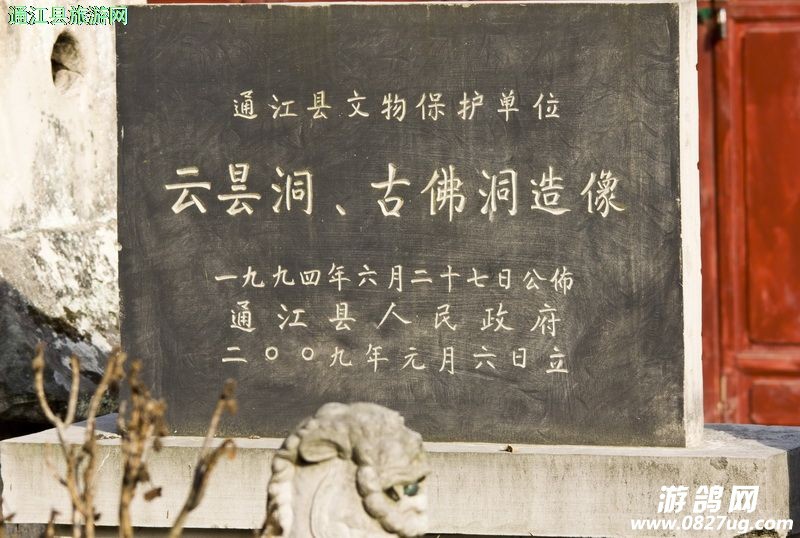 通江县旅游网
通江县文物保护单位
云昙洞、古佛洞造像
一九九四年六月二十七日公佈
通江县人民政府
二〇〇九年元月六日立
游鸽网
www.0827ug.com